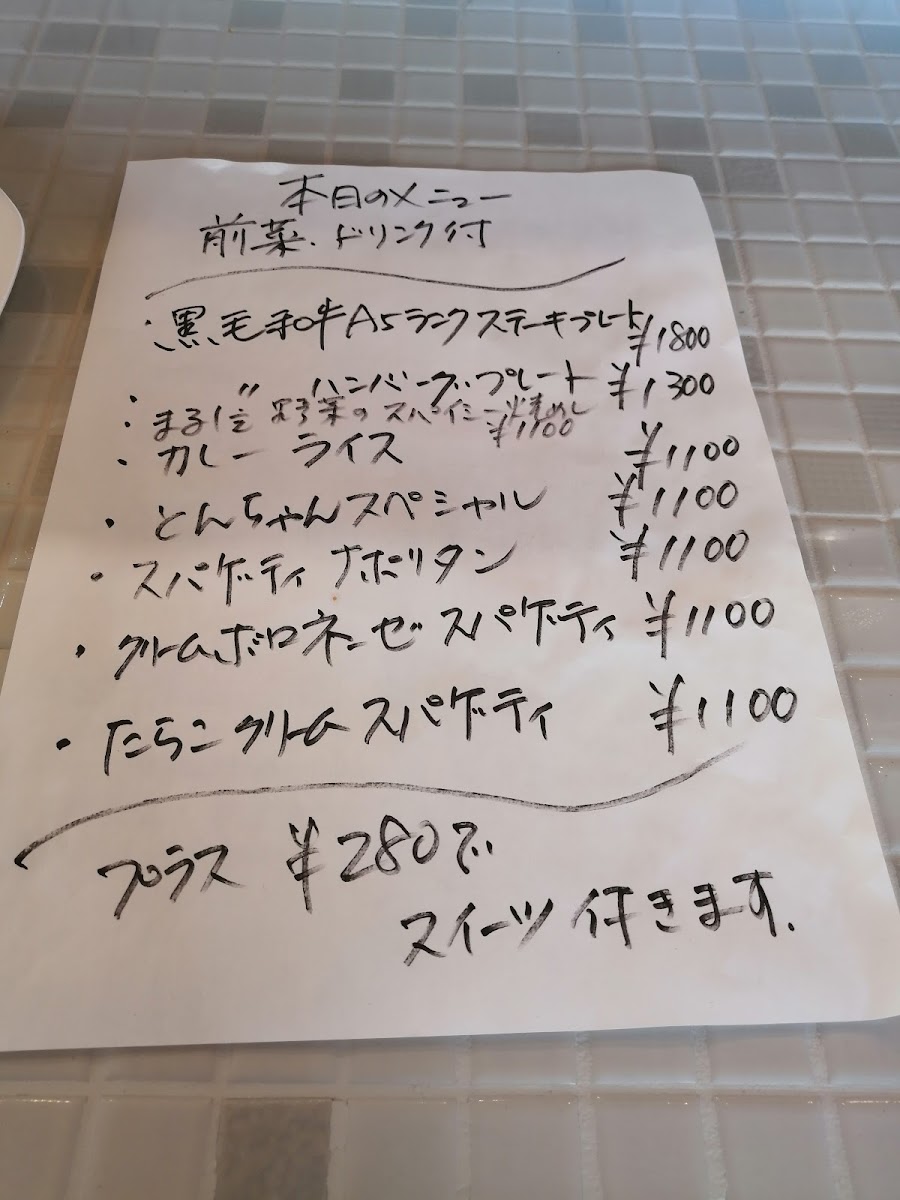 本日のメニュー
前菜・ドリンク付
・黒毛和牛A5ランクステーキプレート ¥1800
・ 〃 ハンバーグプレート ¥1300
・まる 野菜のスパイシー焼めし ¥1100
・カレーライス ¥1100
・とんちゃんスペシャル ¥1100
・スパゲッティ ナポリタン ¥1100
・クリームボロネーゼ スパゲティ ¥1100
・たらこクリームスパゲティ ¥1100
プラス ¥280で
スイーツ付きます.